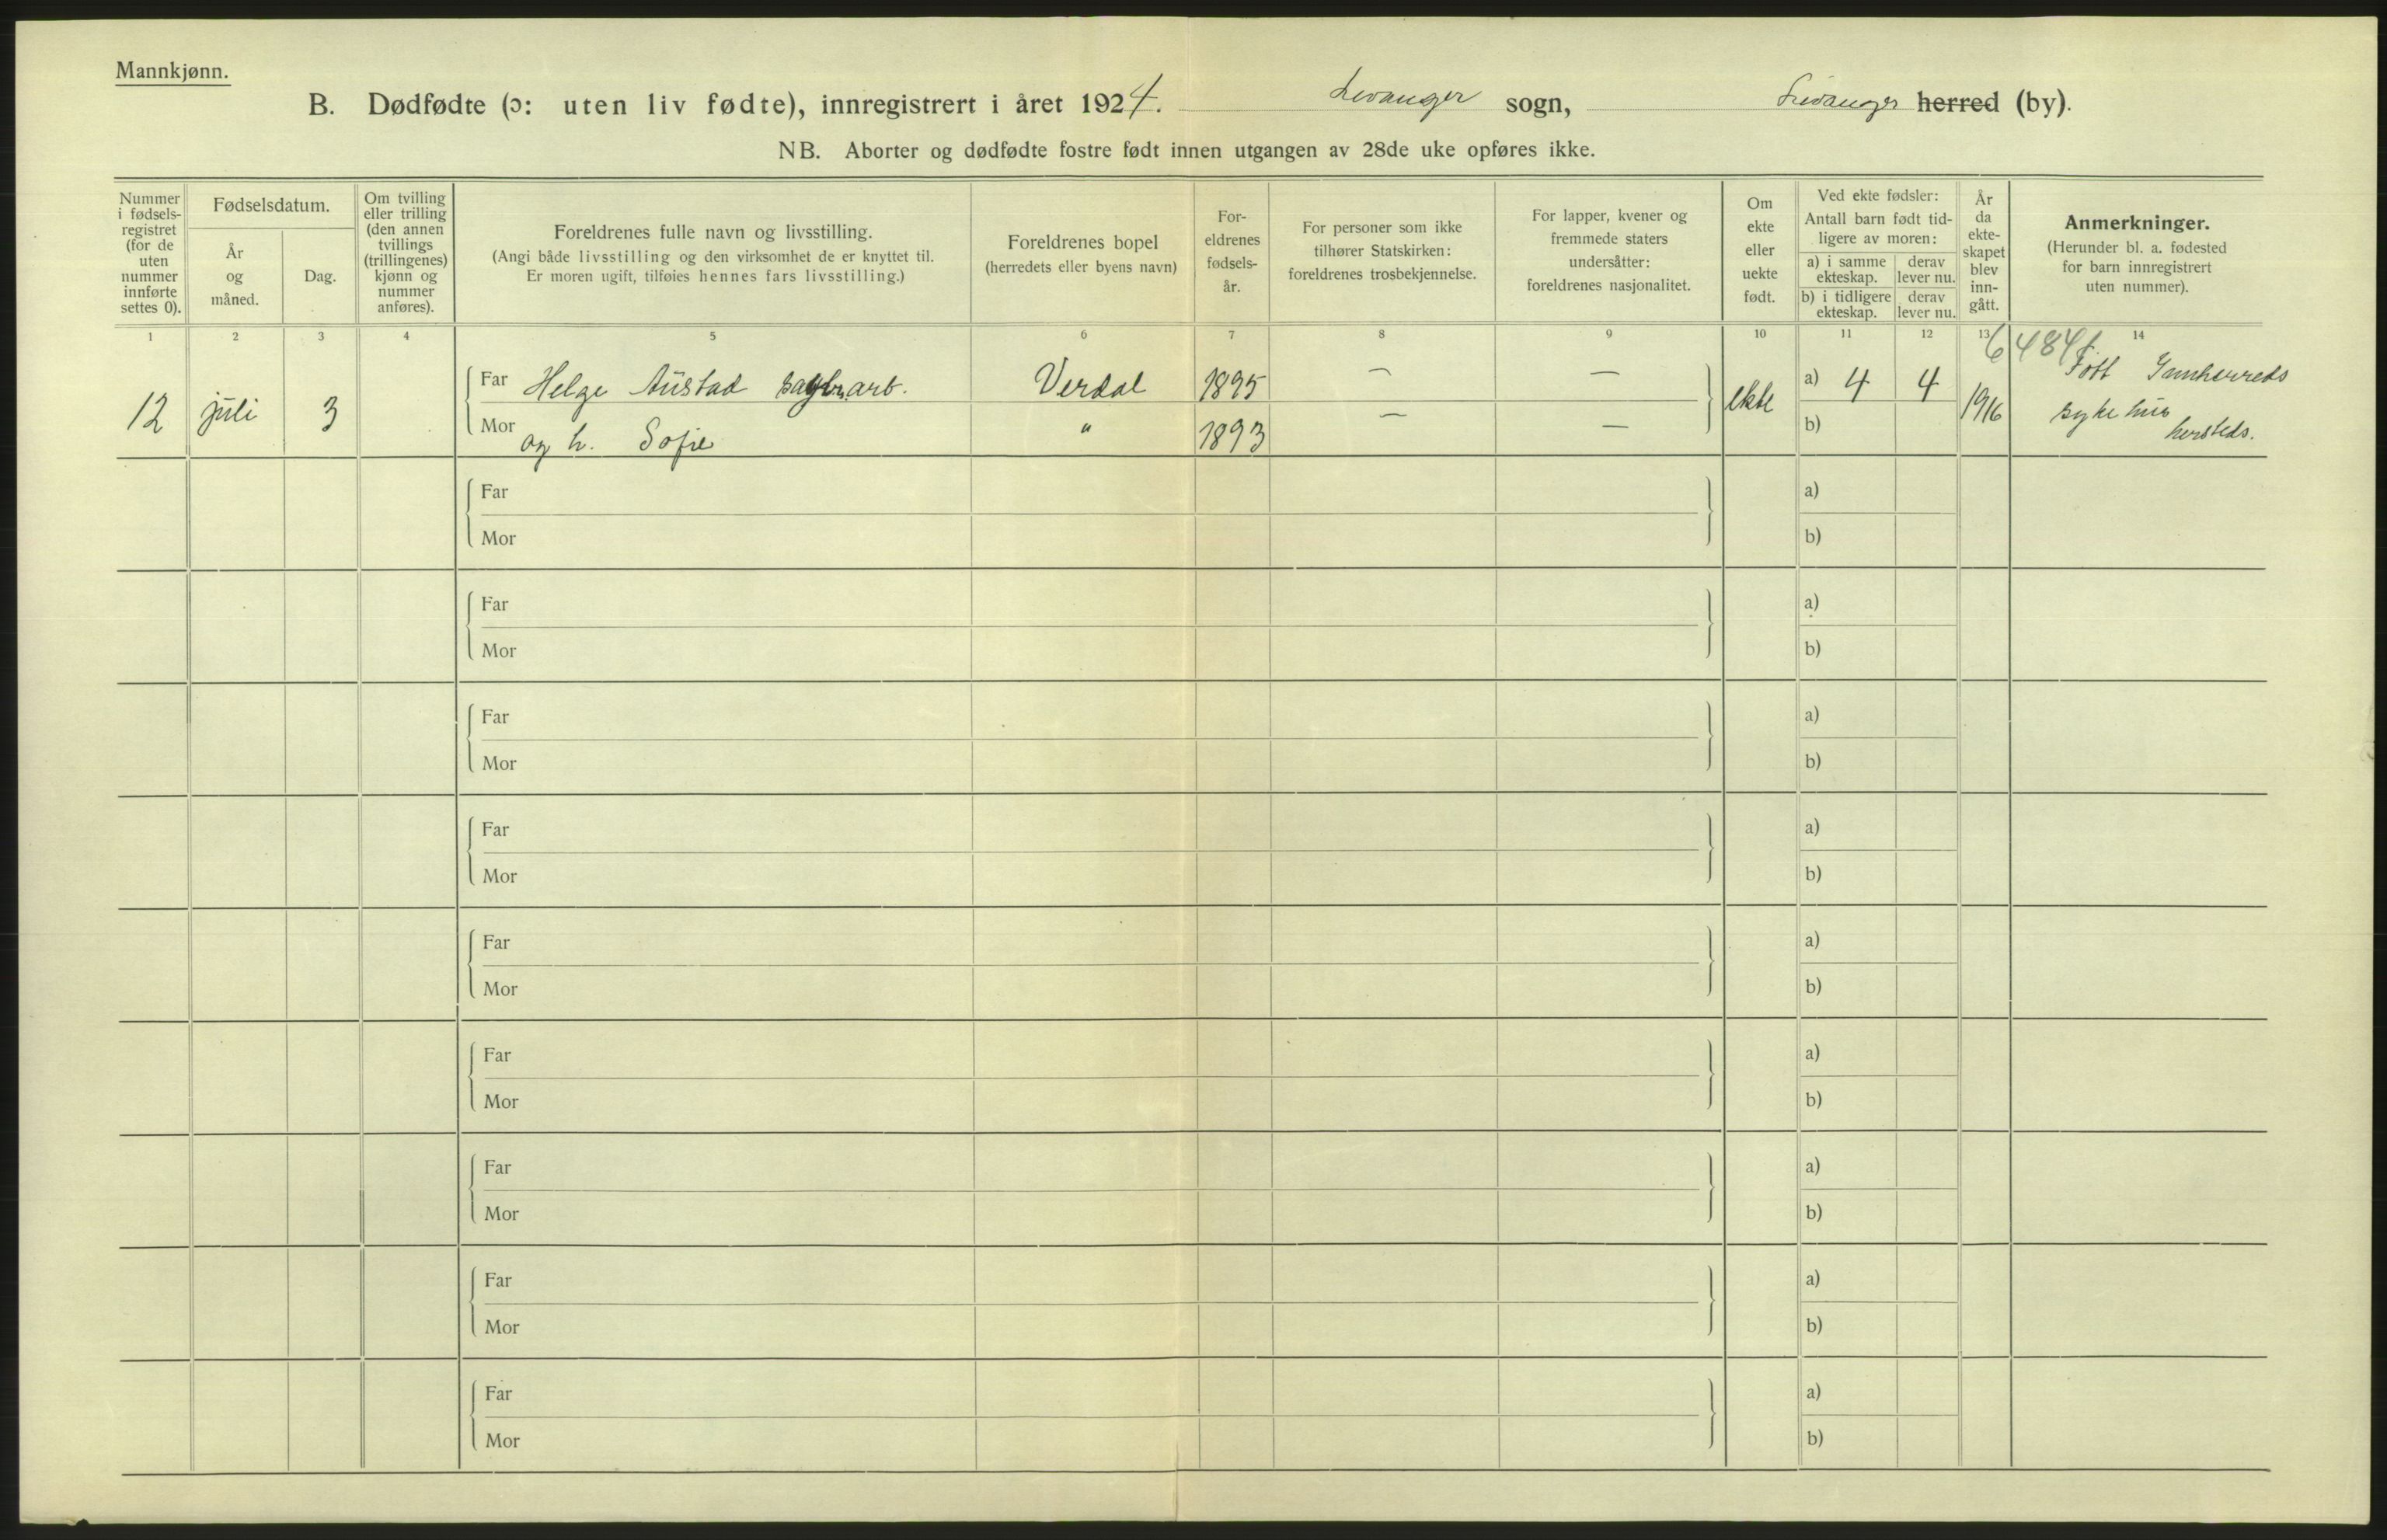 Mannkjønn.
B. Dødfødte (ɔ: uten liv fødte), innregistrert i året 1924. Levanger sogn, Levanger herred (by).
NB. Aborter og dødfødte fostre født innen utgangen av 28de uke opføres ikke.
Nummer i fødselsregistret (for de uten nummer innførte settes 0).
Fødselsdatum.
År og måned.
Dag.
Om tvilling eller trilling (den annen tvillings (trillingenes) kjønn og nummer anføres).
Foreldrenes fulle navn og livsstilling.
(Angi både livsstilling og den virksomhet de er knyttet til.
Er moren ugift, tilføies hennes fars livsstilling.)
Foreldrenes bopel
(herredets eller byens navn)
Foreldrenes fødselsår.
For personer som ikke tilhører Statskirken: foreldrenes trosbekjennelse.
For lapper, kvener og fremmede staters undersåtter: foreldrenes nasjonalitet.
Om ekte eller uekte født.
Ved ekte fødsler:
Antall barn født tidligere av moren:
a) i samme ekteskap.
derav lever nu.
b) i tidligere ekteskap.
derav lever nu.
År da ekteskapet blev inngått.
Anmerkninger.
(Herunder bl. a. fødested for barn innregistrert uten nummer).
1 2 3 4 5 6 7 8 9 10 11 12 13 14
6484
12 juli 3
Far Helge Austad arb. Verdal 1895 — —
Mor og h. Sofie " 1893 — —
ekte
a) 4 4
b)
1916
Født Innherreds
sykehus
Far
Mor
a)
b)
Far
Mor
a)
b)
Far
Mor
a)
b)
Far
Mor
a)
b)
Far
Mor
a)
b)
Far
Mor
a)
b)
Far
Mor
a)
b)
Far
Mor
a)
b)
Far
Mor
a)
b)